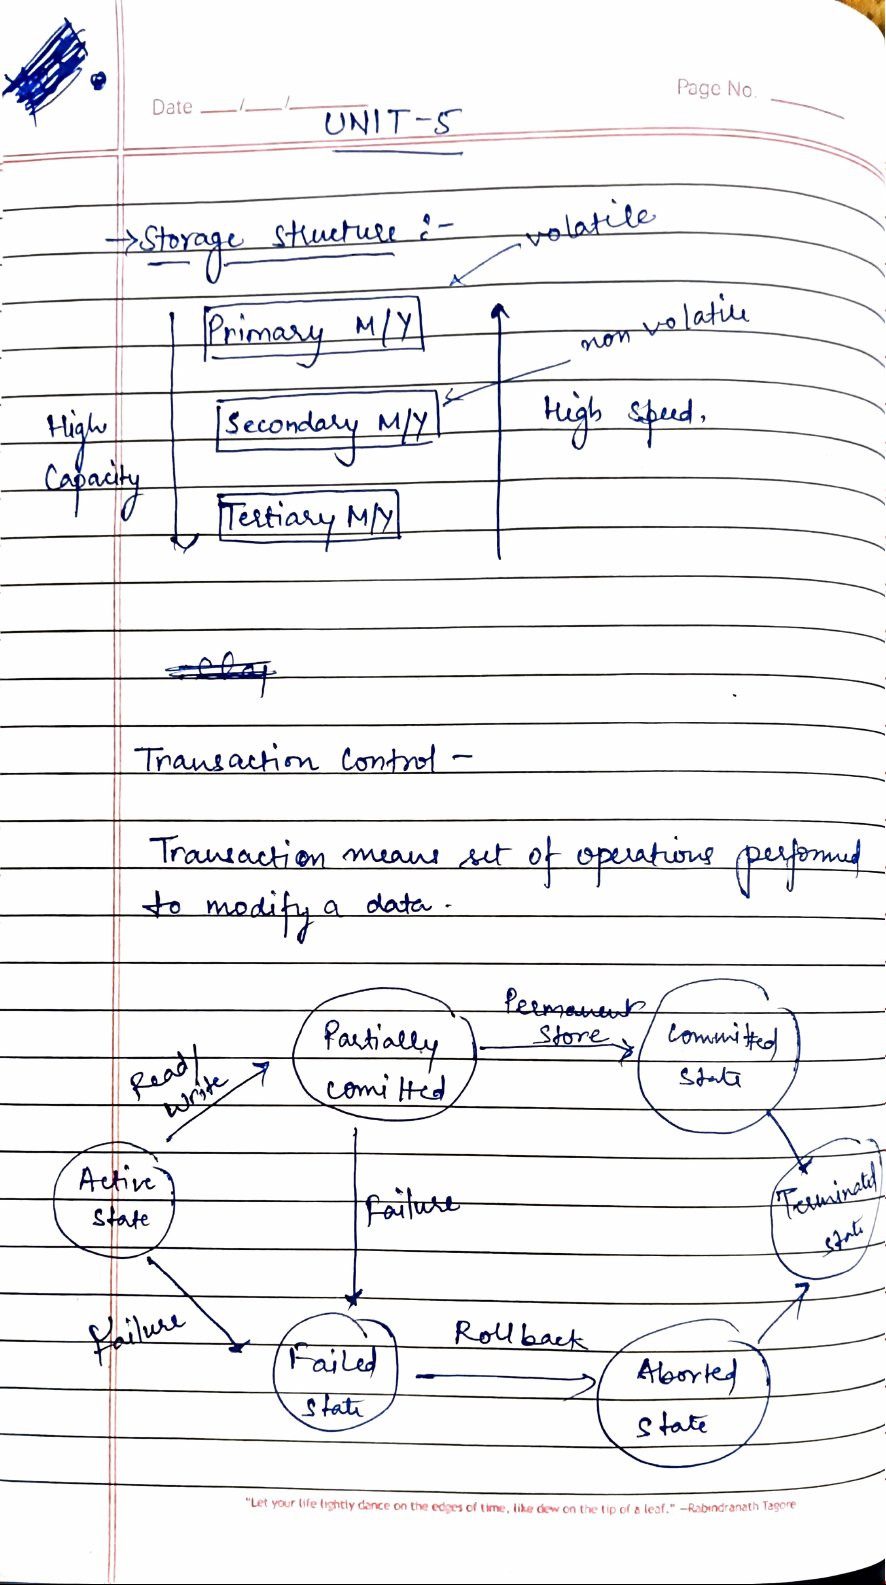 Date __/__/____
Page No. ____
UNIT-5
→ Storage structure :-
volatile
Primary M/Y
non volatile
Secondary M/Y
High speed.
High
Capacity
Tertiary M/Y
Transaction Control -
Transaction means set of operations performed
to modify a data.
Permanent
Store
Partially
comitted
Committed
state
Read/
Write
Active
state
Failure
Terminated
state
Failure
Rollback
Failed
state
Aborted
state
"Let your life lightly dance on the edges of time, like dew on the tip of a leaf." –Rabindranath Tagore